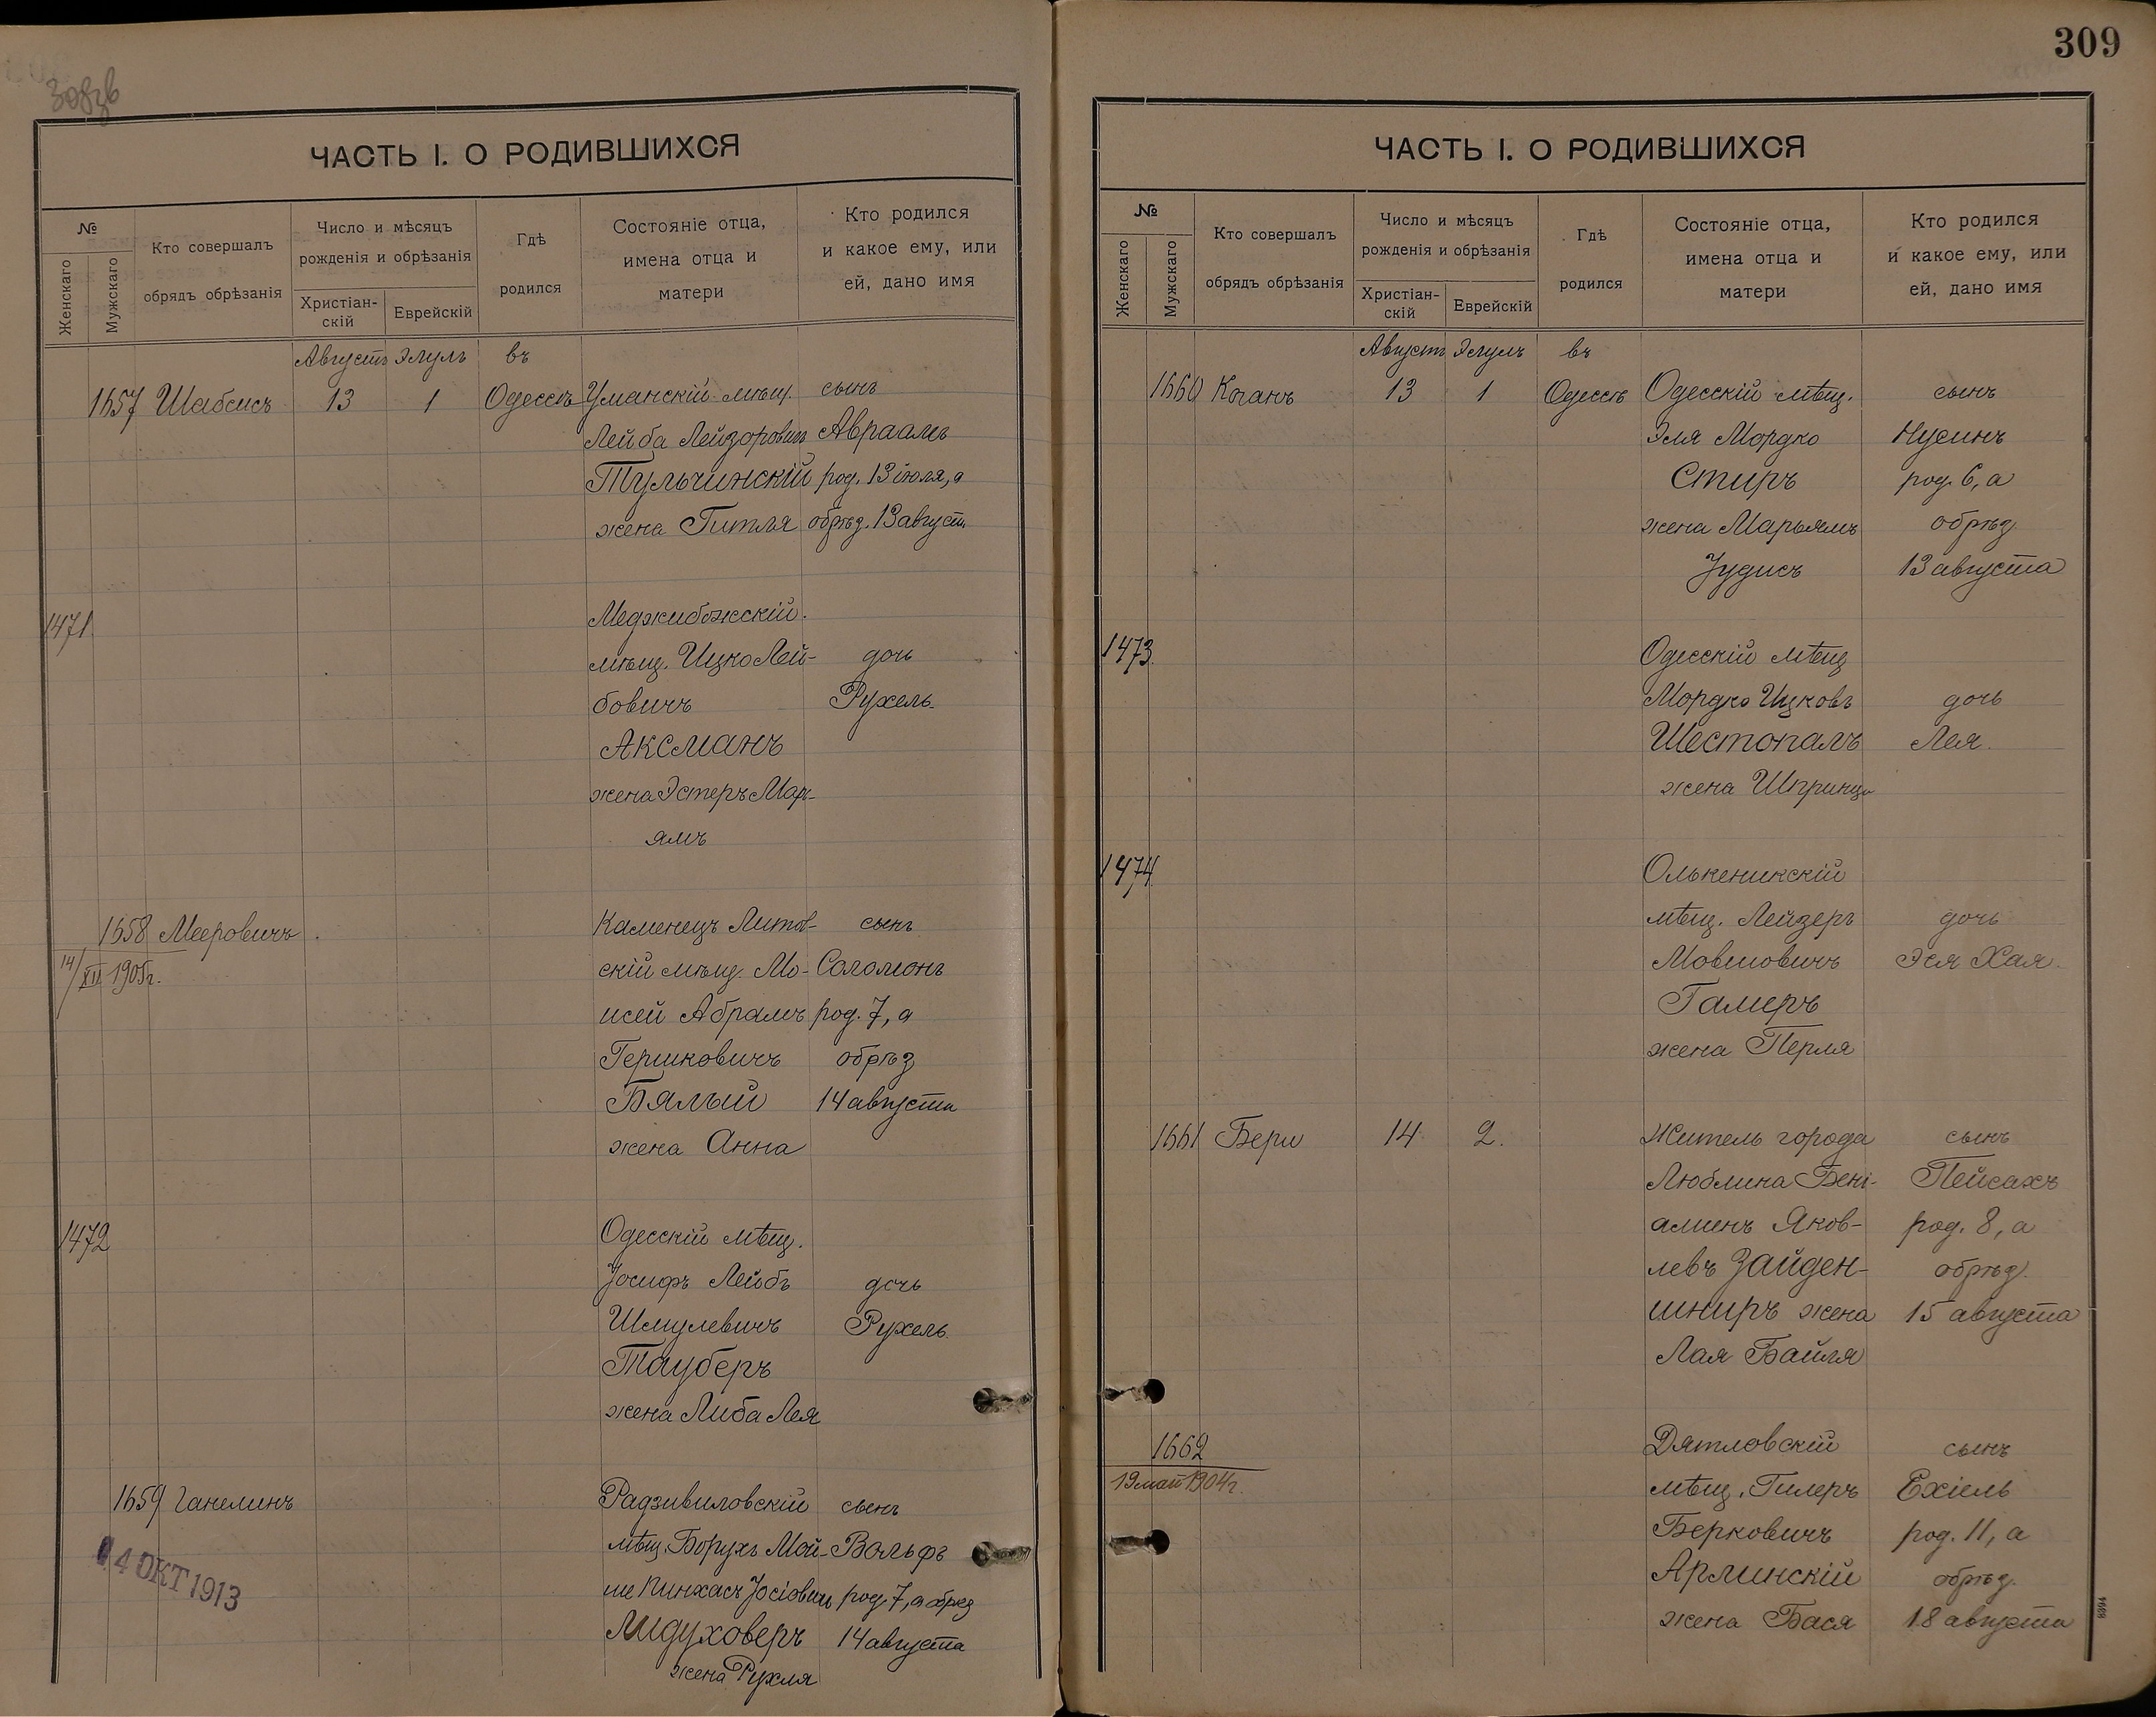 308зв
ЧАСТЬ I. О РОДИВШИХСЯ
№
Женскаго
Мужскаго
Кто совершалъ
обрядъ обрѣзанія
Число и мѣсяцъ
рожденія и обрѣзанія
Христіан-
скій
Еврейскій
Гдѣ
родился
Состояніе отца,
имена отца и
матери
Кто родился
и какое ему, или
ей, дано имя
Августъ Элулъ въ
1657 Шабсисъ 13 1 Одессѣ Уманскій мѣщ. сынъ
Лейба Лейзоровичъ Авраамъ
Тульчинскій род. 13 іюля, а
жена Гитля обрѣз. 13 августа
1471 Меджибожскій
мѣщ. Ицко Лей- дочь
бовичъ Рухель
Аксманъ
жена Эстеръ Марь-
ямъ
1658 Мееровичъ Каменецъ Литов- сынъ
14/XII 1905г. скій мѣщ. Мо- Соломонъ
исей Абрамъ род. 7, а
Гершковичъ обрѣз
Бялый 14 августа
жена Анна
1472 Одесскій мѣщ.
Іосифъ Лейбъ дочь
Шмулевичъ Рухель
Тауберъ
жена Либа Лея
1659 Ганелинъ Радзивиловскій сынъ
мѣщ. Борухъ Мой- Вольфъ
14 ОКТ 1913
ше Пинхасъ Іосіовичъ род. 7, а обрѣз
Лидуховеръ 14 августа
жена Рухля
309
ЧАСТЬ I. О РОДИВШИХСЯ
№
Женскаго
Мужскаго
Кто совершалъ
обрядъ обрѣзанія
Число и мѣсяцъ
рожденія и обрѣзанія
Христіан-
скій
Еврейскій
Гдѣ
родился
Состояніе отца,
имена отца и
матери
Кто родился
и какое ему, или
ей, дано имя
Августъ Элулъ въ
1660 Коганъ 13 1 Одессѣ Одесскій мѣщ. сынъ
Эля Мордко Нусинъ
Стиръ род. 6, а
жена Марьямъ обрѣз
Іудисъ 13 августа
1473 Одесскій мѣщ
Мордко Ицковъ дочь
Шестопалъ Лея.
жена Шпринца
1474 Олькеникскій
мѣщ. Лейзеръ дочь
Мовшовичъ Эся Хая.
Гамеръ
жена Перля
1661 Бери 14 2. Житель города сынъ
Люблина Бені- Пейсахъ
аминъ Яков- род. 8, а
левъ Зайден- обрѣз.
шниръ жена 15 августа
Лая Байля
1662 Дятловскій сынъ
19 мая 1904г. мѣщ. Гилеръ Ехіель
Берковичъ род. 11, а
Арлинскій обрѣз.
жена Бася 18 августа